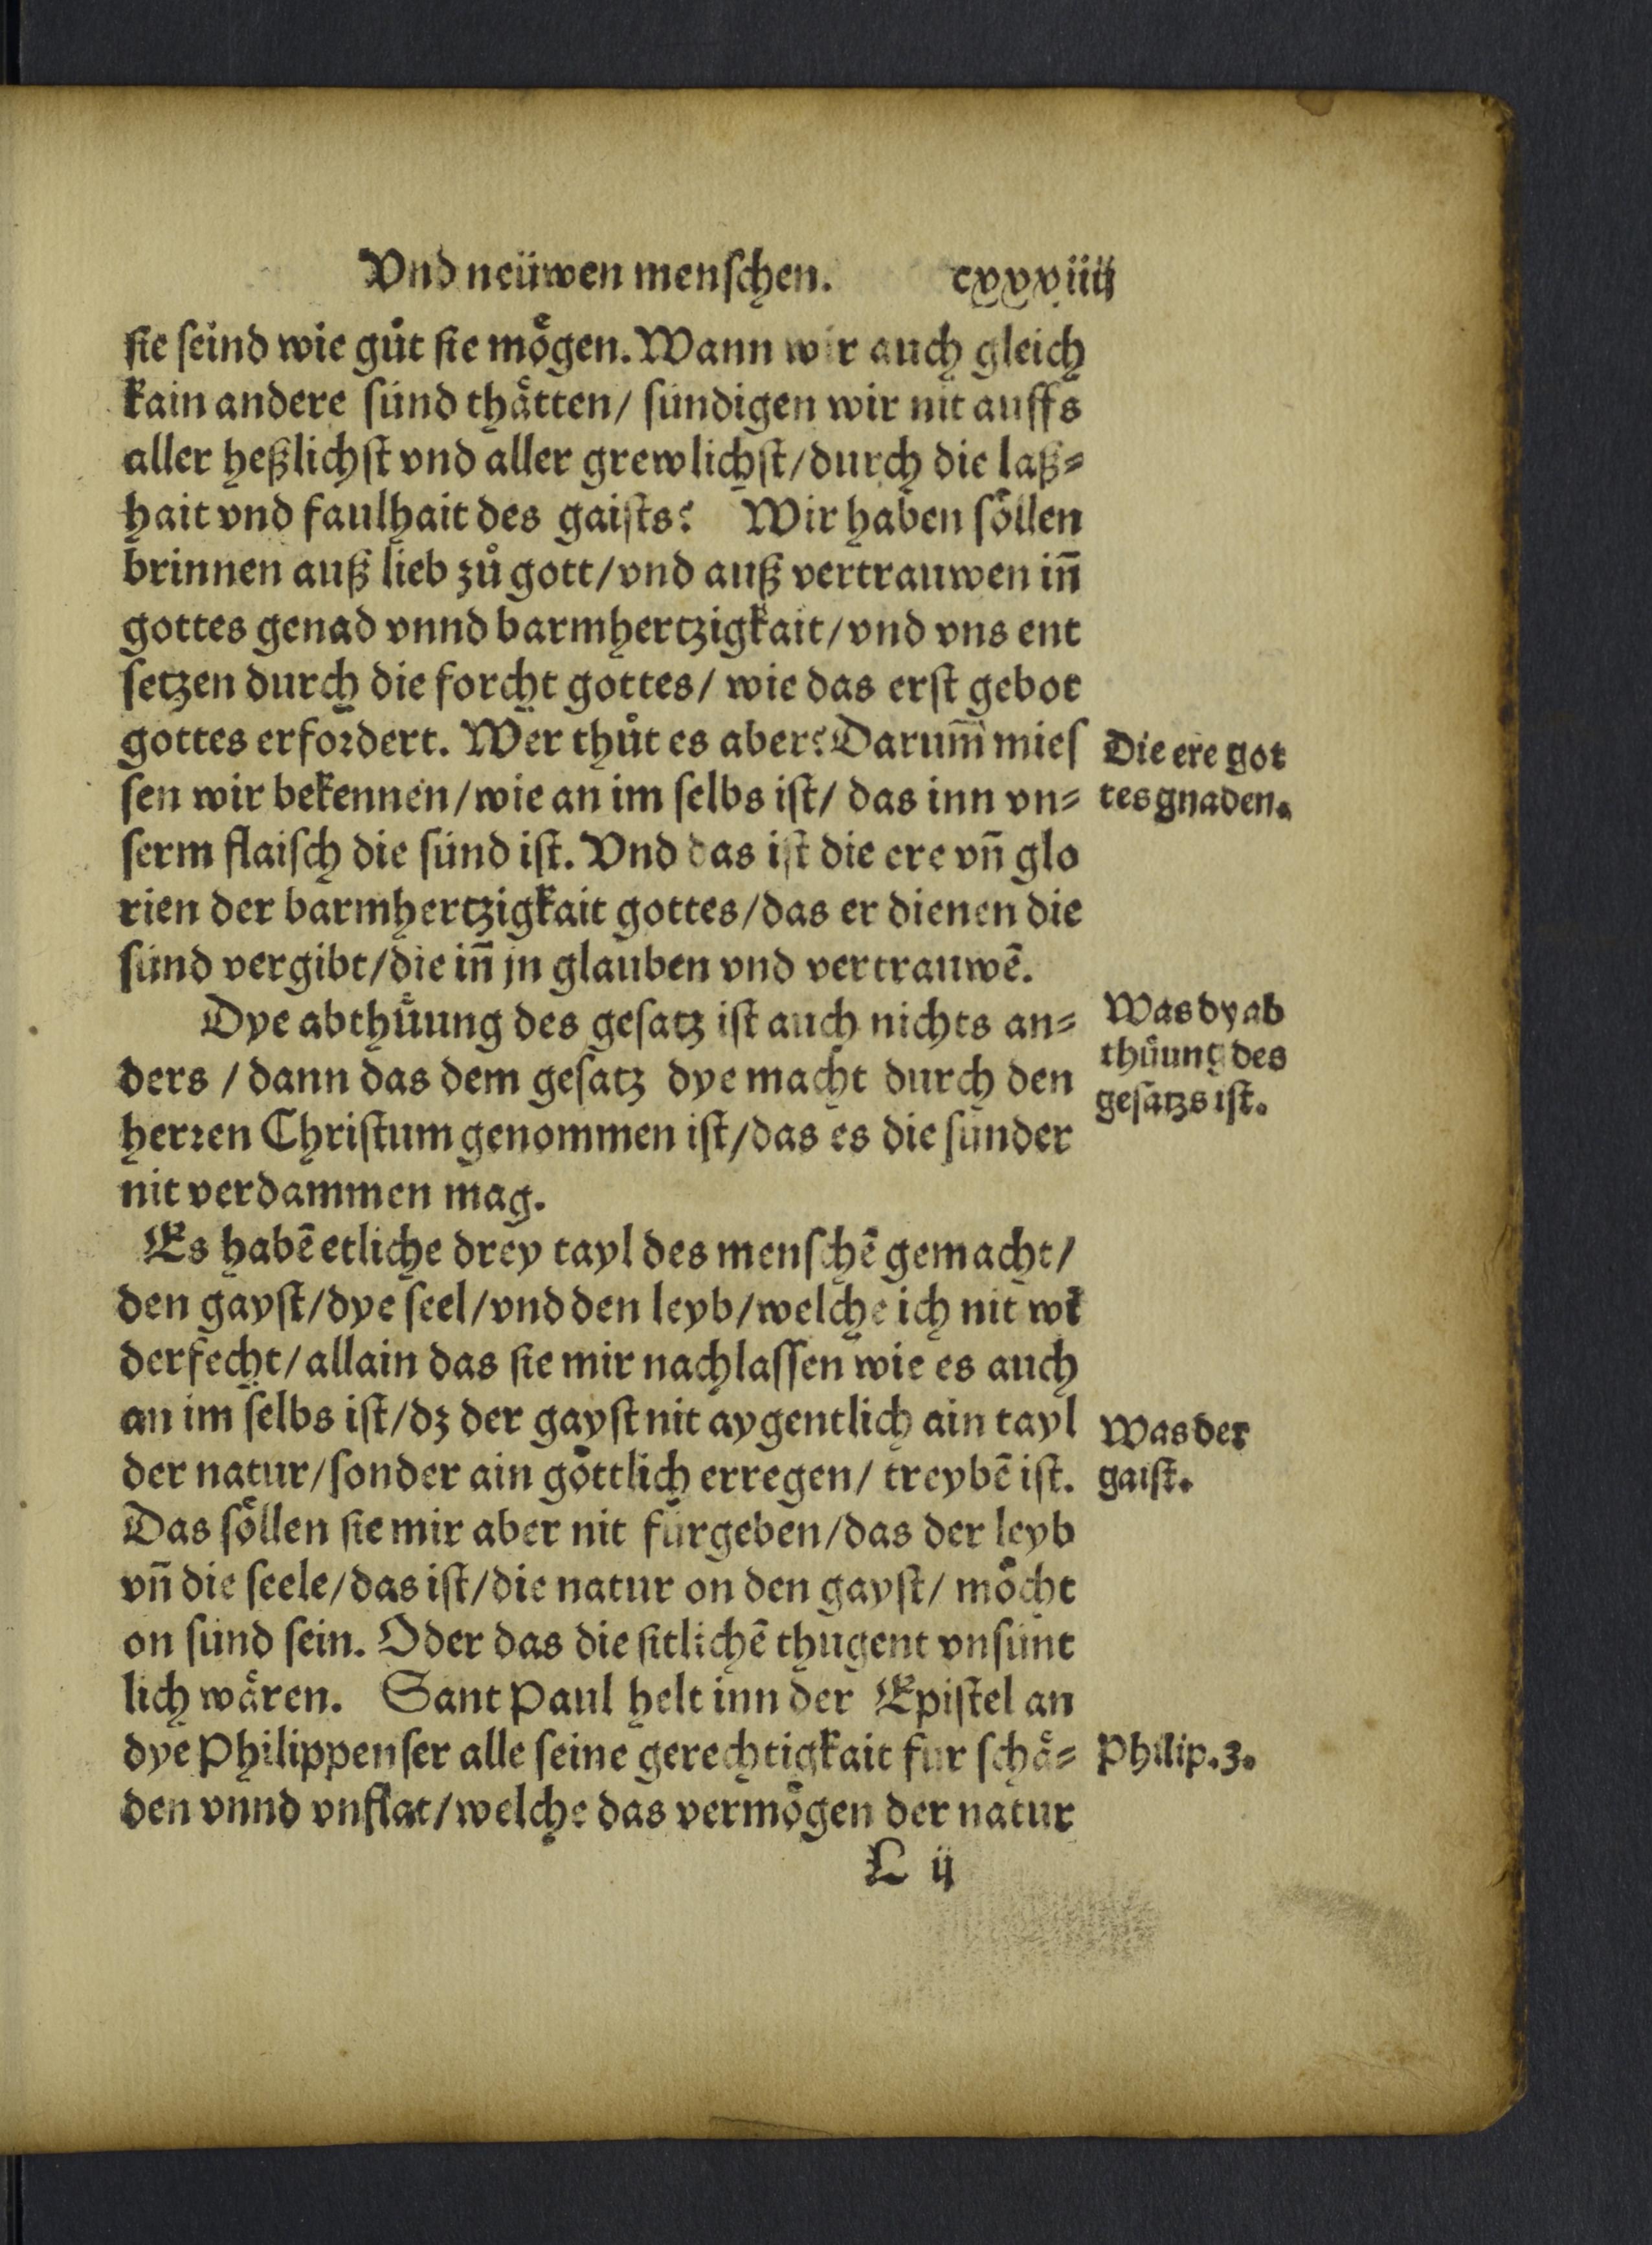 Vnd neüwen menſchen. cxxxiiij
ſie ſeind wie gůt ſie moͤgen. Wann wir auch gleich
kain andere ſünd thaͤtten/ ſündigen wir nit auffs
aller heßlichſt vnd aller grewlichſt/durch die laß⸗
hait vnd faulhait des gaiſts? Wir haben ſoͤllen
brinnen auß lieb zů gott/vnd auß vertrauwen in̄
gottes genad vnnd barmhertzigkait/vnd vns ent
ſetzen durch die forcht gottes/ wie das erſt gebot
gottes erfoꝛdert. Wer thůt es aber? Darum̄ mieſ
ſen wir bekennen/wie an im ſelbs iſt/ das inn vn⸗
ſerm flaiſch die ſünd iſt. Vnd das iſt die ere vn̄ glo
rien der barmhertzigkait gottes/das er dienen die
ſünd vergibt/die in̄ jn glauben vnd vertrauwē.
Die ere got
tes gnaden.
Dye abthuͤung des geſatz iſt auch nichts an⸗
ders / dann das dem geſatz dye macht durch den
herꝛen Chriſtum genommen iſt/das es die ſünder
nit verdammen mag.
Was dy ab
thuͤung des
geſatzs iſt.
Es habē etliche drey tayl des menſchē gemacht/
den gayſt/dye ſeel/vnd den leyb/welche ich nit wi
derfecht/allain das ſie mir nachlaſſen wie es auch
an im ſelbs iſt/dz der gayſt nit aygentlich ain tayl
der natur/ſonder ain goͤttlich erregen/ treybē iſt.
Das ſoͤllen ſie mir aber nit fürgeben/das der leyb
vn̄ die ſeele/das iſt/die natur on den gayſt/ moͤcht
on ſünd ſein. Oder das die ſitlichē thugent vnſünt
lich waͤren. Sant Paul helt inn der Epiſtel an
dye Philippenſer alle ſeine gerechtigkait für ſchaͤ⸗
den vnnd vnflat/welche das vermoͤgen der natur
Was der
gaiſt.
Philip.3.
L ij